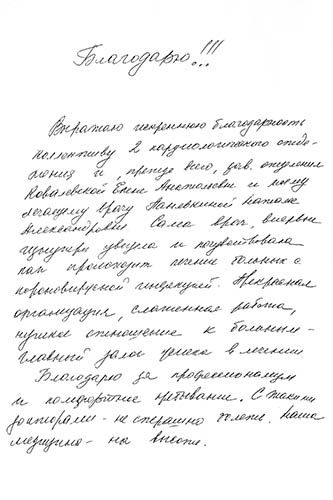 Благодарю!!!
Выражаю искреннюю благодарность
коллективу 2 кардиологического отде-
ления и, прежде всего, зав. отделения
Ковалевской Елене Анатольевне и моему
лечащему врачу Наталье
Александровне. Сама врач, впервые
изнутри увидела и почувствовала
как проходит лечение больных с
короновирусной инфекцией. Прекрасная
организация, слаженная работа,
чуткое отношение к больным -
главный залог успеха в лечении
Благодарю за профессионализм
и комфортное пребывание. С такими
докторами - не страшно болеть. Наша
медицина - на высоте.